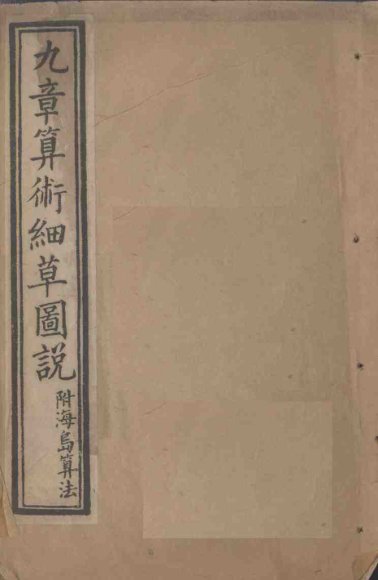 九章算術細草圖説
附海島算法